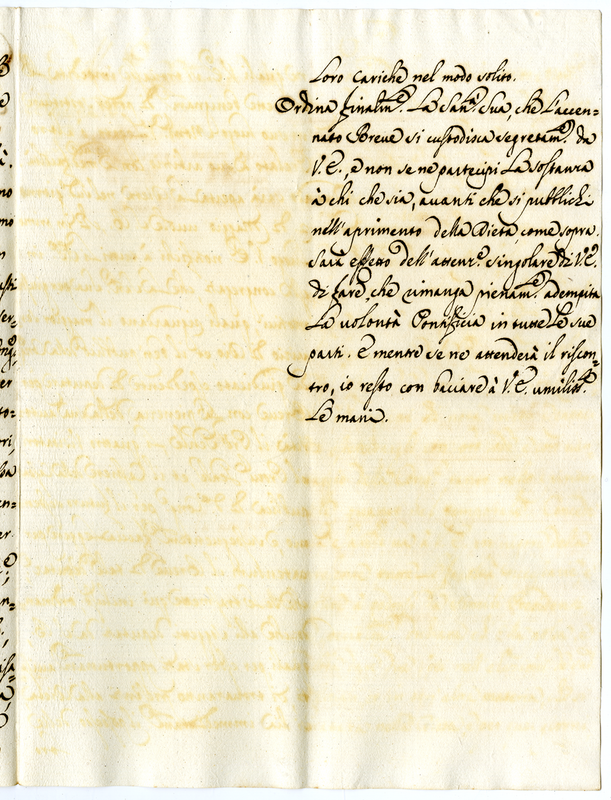 Loro Cariche nel modo solito.
Ordina finalm.e La San.tà Sua, che L'accen=
nato Breve si custodisca segretam.e da
V.E., e non se ne partecipi La sostanza
à chi che sia, avanti che si pubblichi
nell'aprimento della Dieta, come sopra.
Sarà effetto dell'attenz.e singolare di V.E.
di fare, che rimanga pienam.e adempita
La volontà Pontificia in tutte Le sue
parti. E mentre se ne attenderà il riscon=
tro, io resto con baciare à V.E. umilis.te
Le mani.